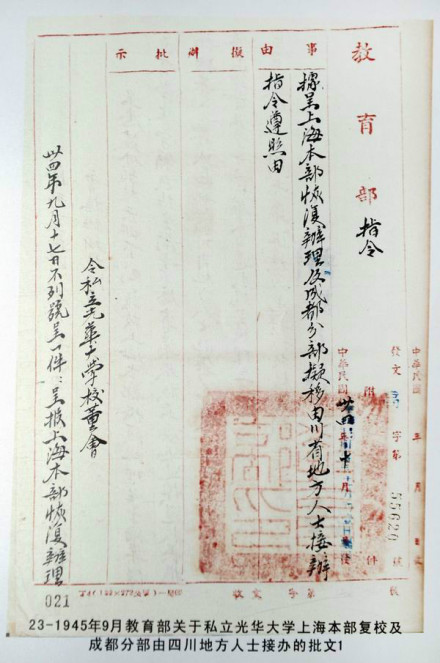 教育部 指令
事由
擬辦
批示
據呈上海本部恢復辦理及成都分部擬移由川省地方人士接辦
指令遵照由
中華民國卅四年
附件
發文 字第 55620 號
中華民國 年 月 日
令私立光華大學校董會
卅四年九月十七日不列號呈一件：呈報上海本部恢復辦理
021
23-1945年9月教育部关于私立光华大学上海本部复校及
成都分部由四川地方人士接办的批文1